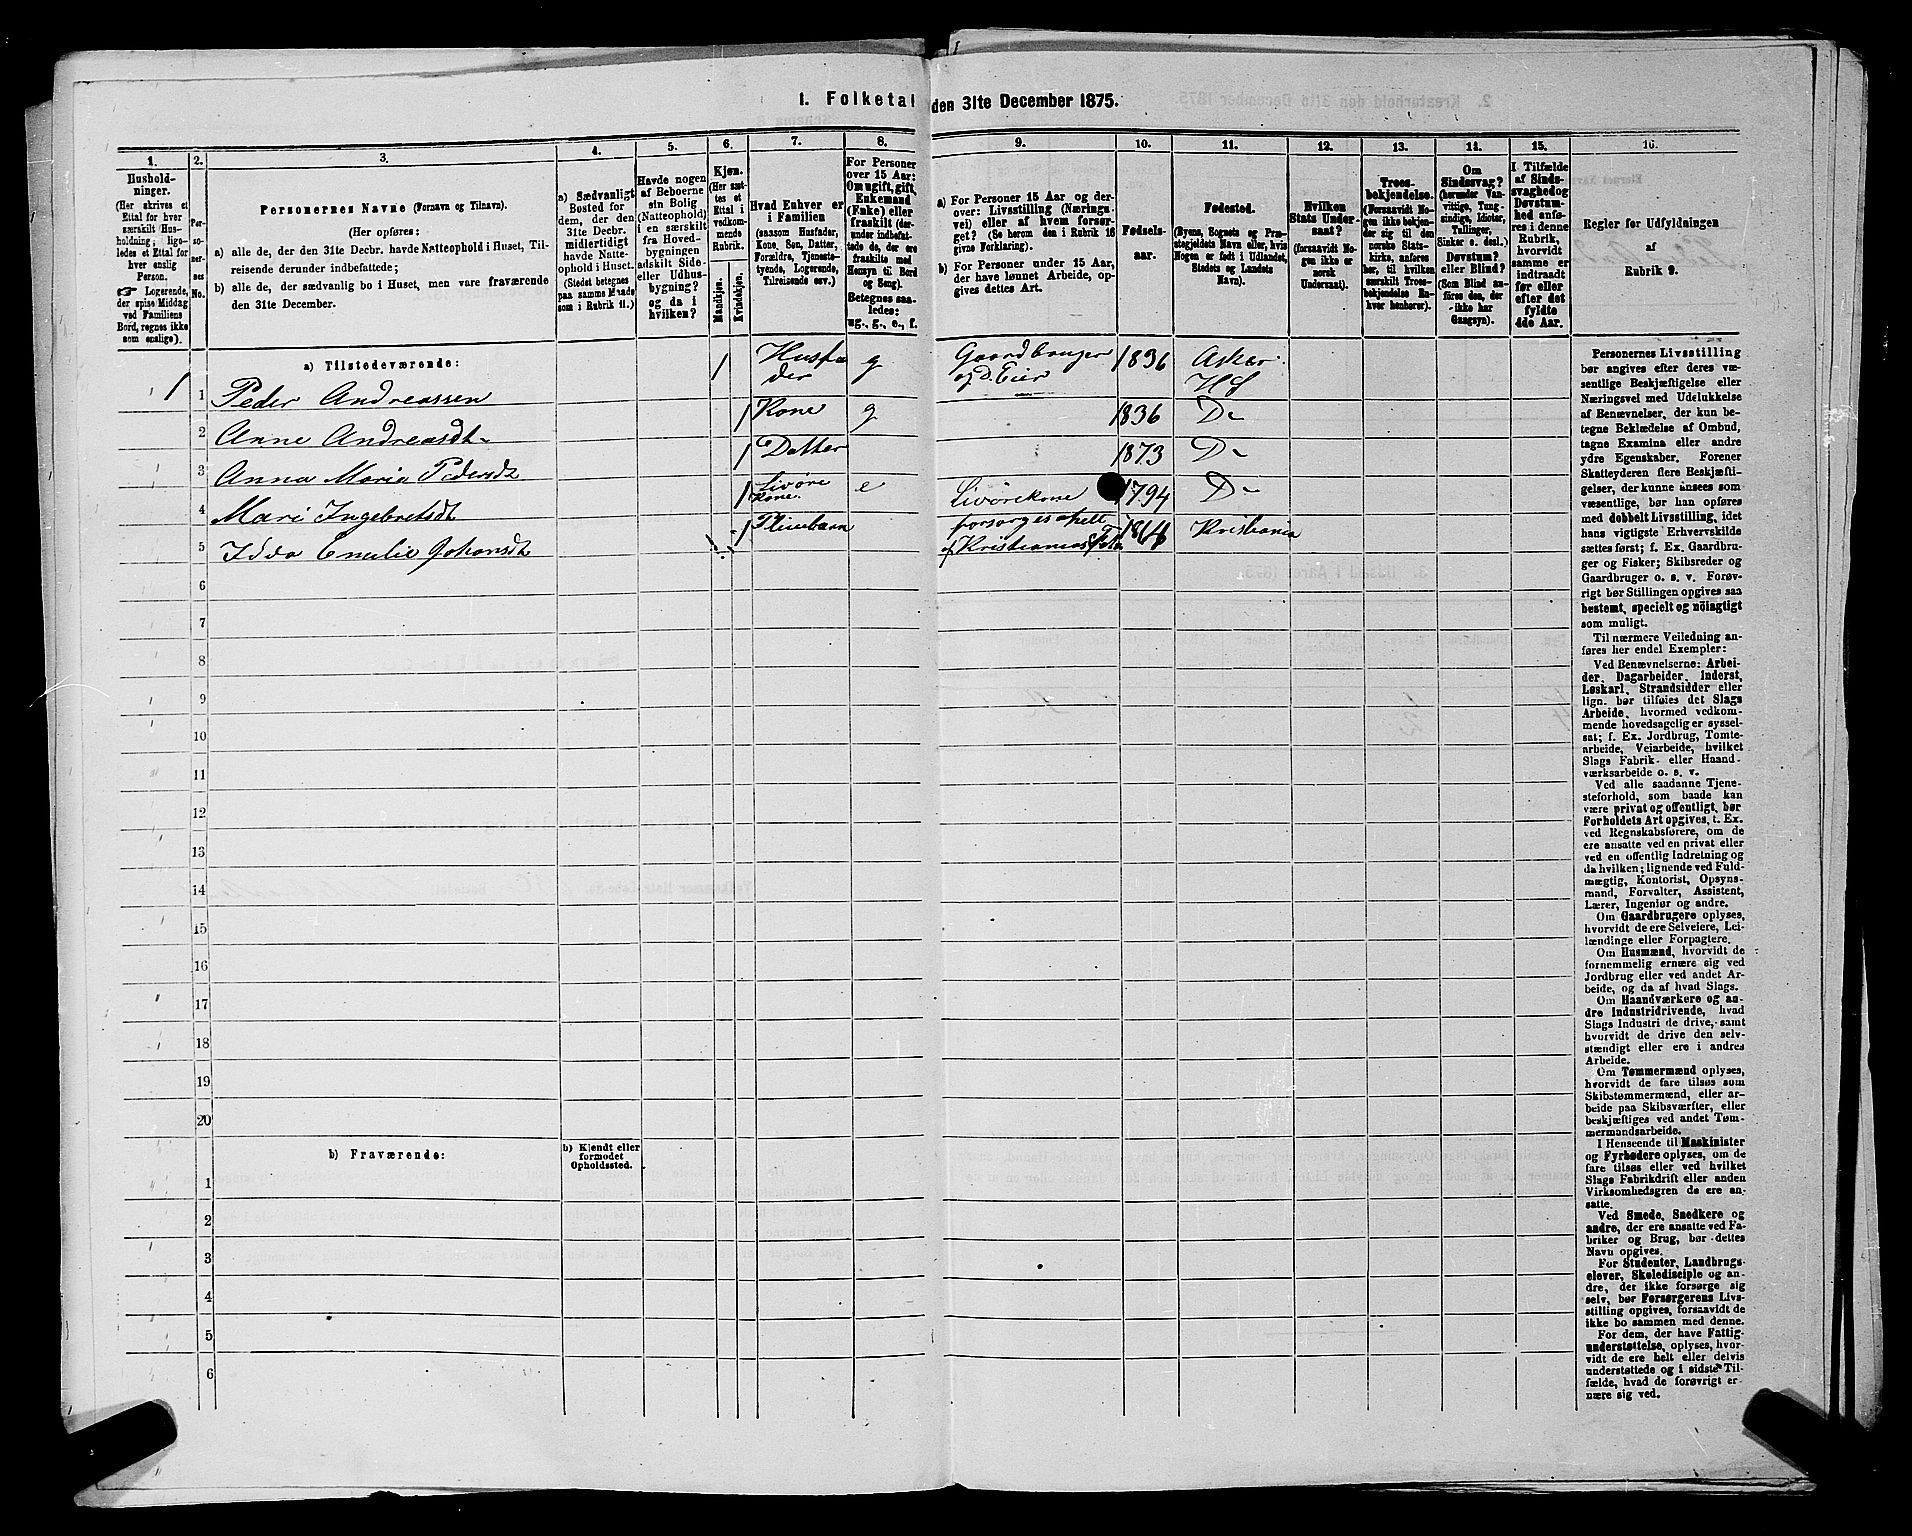 1. Folketal den 31te December 1875.
1. 2. 3. 4. 5. 6. 7. 8. 9. 10. 11. 12. 13. 14. 15. 16.
Hushold-
ninger.
(Her skrives et
Ettal for hver
særskilt Hus-
holdning; lige-
ledes et Ettal for
hver enslig
Person.
☞ Logerende,
der spise Middag
ved Familiens
Bord, regnes ikke
som enslige).
Per-
so-
ner-
nes
No.
Personernes Navne (Fornavn og Tilnavn).
(Her opføres:
a) alle de, der den 31te Decbr. havde Natteophold i Huset, Til-
reisende derunder indbefattede;
b) alle de, der sædvanlig bo i Huset, men vare fraværende
den 31te December.
a) Sædvanligt
Bosted for
dem, der den
31te Decbr.
midlertidigt
havde Natte-
ophold i Huset.
(Stedet betegnes
paa samme Maade
som i Rubrik 11.)
Havde nogen
af Beboerne
sin Bolig
(Natteophold)
i en særskilt
fra Hoved-
bygningen
adskilt Side-
eller Udhus-
bygning?
og da i
hvilken?
Kjøn.
(Her sæt-
tes et
Ettal i
vedkom-
mende
Rubrik.
Mandkjøn.
Kvindekjøn.
Hvad Enhver er
i Familien
(saasom Husfader,
Kone, Søn, Datter,
Forældre, Tjeneste-
tyende, Logerende,
Tilreisende osv.)
For Personer
over 15 Aar:
Om ugift, gift,
Enkemand
(Enke) eller
fraskilt (der-
under indbefat-
tede de, der ere
fraskilte med
Hensyn til Bord
og Seng).
Betegnes saa-
ledes:
ug., g., e., f.
a) For Personer 15 Aar og der-
over: Livsstilling (Nærings-
vei) eller af hvem forsør-
get? (Se herom den i Rubrik 16
givne Forklaring).
b) For Personer under 15 Aar,
der have lønnet Arbeide, op-
gives dettes Art.
Fødsels-
aar.
Fødested.
(Byens, Sognets og Præ-
stegjeldets Navn eller, hvis
Nogen er født i Udlandet,
Stedets og Landets
Navn).
Hvilken
Stats Under-
saat?
(forsaavidt No-
gen ikke er
norsk
Undersaat).
Troes-
bekjendelse.
(Forsaavidt No-
gen ikke bekjen-
der sig til den
norske Stats-
kirke, anføres
her, til hvilken
særskilt Troes-
bekjendelse En-
hver henhører).
Om
Sindssvag?
(herunder Van-
vittige, Tung-
sindige, Idioter,
Tullinger,
Sinker o. desl.)
Døvstum?
eller Blind?
(Som Blind an-
føres den, der
ikke har
Gangsyn).
I Tilfælde
af Sinds-
svaghed og
Døvstum-
hed anfø-
res i denne
Rubrik,
hvorvidt
samme er
indtraadt
før eller
efter det
fyldte
4de Aar.
Regler for Udfyldningen
af
Rubrik 9.
a) Tilstedeværende:
1 1 Peder Andreassen 1 Husfa
der g Gaardbruger
og D. Eier 1836 Asker
HS
2 Anne Andreasdt 1 Kone g 1836 Do
3 Anna Maria Pedersdt 1 Datter 1873 Do
4 Mari Ingebretsdt 1 Livøre
Kone e Livørekone 1794 Do
5 Idda Emilie Johansdt 1 Pleiebarn forsørges helt
af Kristianias 186 Kristiania
6
7
8
9
10
11
12
13
14
15
16
17
18
19
20
b) Fraværende:
b) Kjendt eller
formodet
Opholdssted.
1
2
3
4
5
6
Personernes Livsstilling
bør angives efter deres væ-
sentlige Beskjæftigelse eller
Næringsvei med Udelukkelse
af Benævnelser, der kun be-
tegne Beklædelse af Ombud,
tagne Examina eller andre
ydre Egenskaber. Forener
Skatteyderen flere Beskjæfti-
gelser, der kunne ansees som
væsentlige, bør han opføres
med dobbelt Livsstilling, idet
hans vigtigste Erhvervskilde
sættes først; f. Ex. Gaardbru-
ger og Fisker; Skibsreder og
Gaardbruger o. s. v. Forøv-
rigt bør Stillingen opgives saa
bestemt, specielt og nöiagtigt
som muligt.
Til nærmere Veiledning an-
føres her endel Exempler:
Ved Benævnelserne: Arbei-
der, Dagarbeider, Inderst,
Løskarl, Strandsidder eller
lign. bør tilføies det Slags
Arbeide, hvormed vedkom-
mende hovedsagelig er syssel-
sat; f. Ex. Jordbrug, Tomte-
arbeide, Veiarbeide, hvilket
Slags Fabrik- eller Haand-
værksarbeide o. s. v.
Ved alle saadanne Tjene-
steforhold, som baade kan
være privat og offentligt, bør
Forholdets Art opgives, t. Ex.
ved Regnskabsførere, om de
ere ansatte ved en privat eller
ved en offentlig Indretning og
da hvilken; lignende ved Fuld-
mægtig, Kontorist, Opsyns-
mand, Forvalter, Assistent,
Lærer, Ingeniør og andre.
Om Gaardbrugere oplyses,
hvorvidt de ere Selveiere, Lei-
lændinge eller Forpagtere.
Om Husmænd, hvorvidt de
fornemmelig ernære sig ved
Jordbrug eller ved andet Ar-
beide, og da af hvad Slags.
Om Haandværkere og an-
dre Industridrivende, hvad
Slags Industri de drive, samt
hvorvidt de drive den selv-
stændigt eller ere i andres
Arbeide.
Om Tømmermænd oplyses,
hvorvidt de fare tilsøs som
Skibstømmermænd, eller ar-
beide paa Skibsværfter, eller
beskjæftiges ved andet Tøm-
mermandsarbeide.
I Henseende til Maskinister
og Fyrbødere oplyses, om de
fare tilsøs eller ved hvilket
Slags Fabrikdrift eller anden
Virksomhedsgren de ere an-
satte.
Ved Smede, Snedkere og
andre, der ere ansatte ved Fa-
briker og Brug, bør dettes
Navn opgives.
For Studenter, Landbrugs-
elever, Skoledisciple og an-
dre, der ikke forsørge sig
selv, bør Forsørgerens Livs-
stilling opgives, forsaavidt de
ikke bo sammen med denne.
For dem, der have Fattig-
understøttelse, oplyses, hvor-
vidt de ere helt eller delvis
understøttede og i sidste Til-
fælde, hvad de forøvrigt er-
nære sig ved.